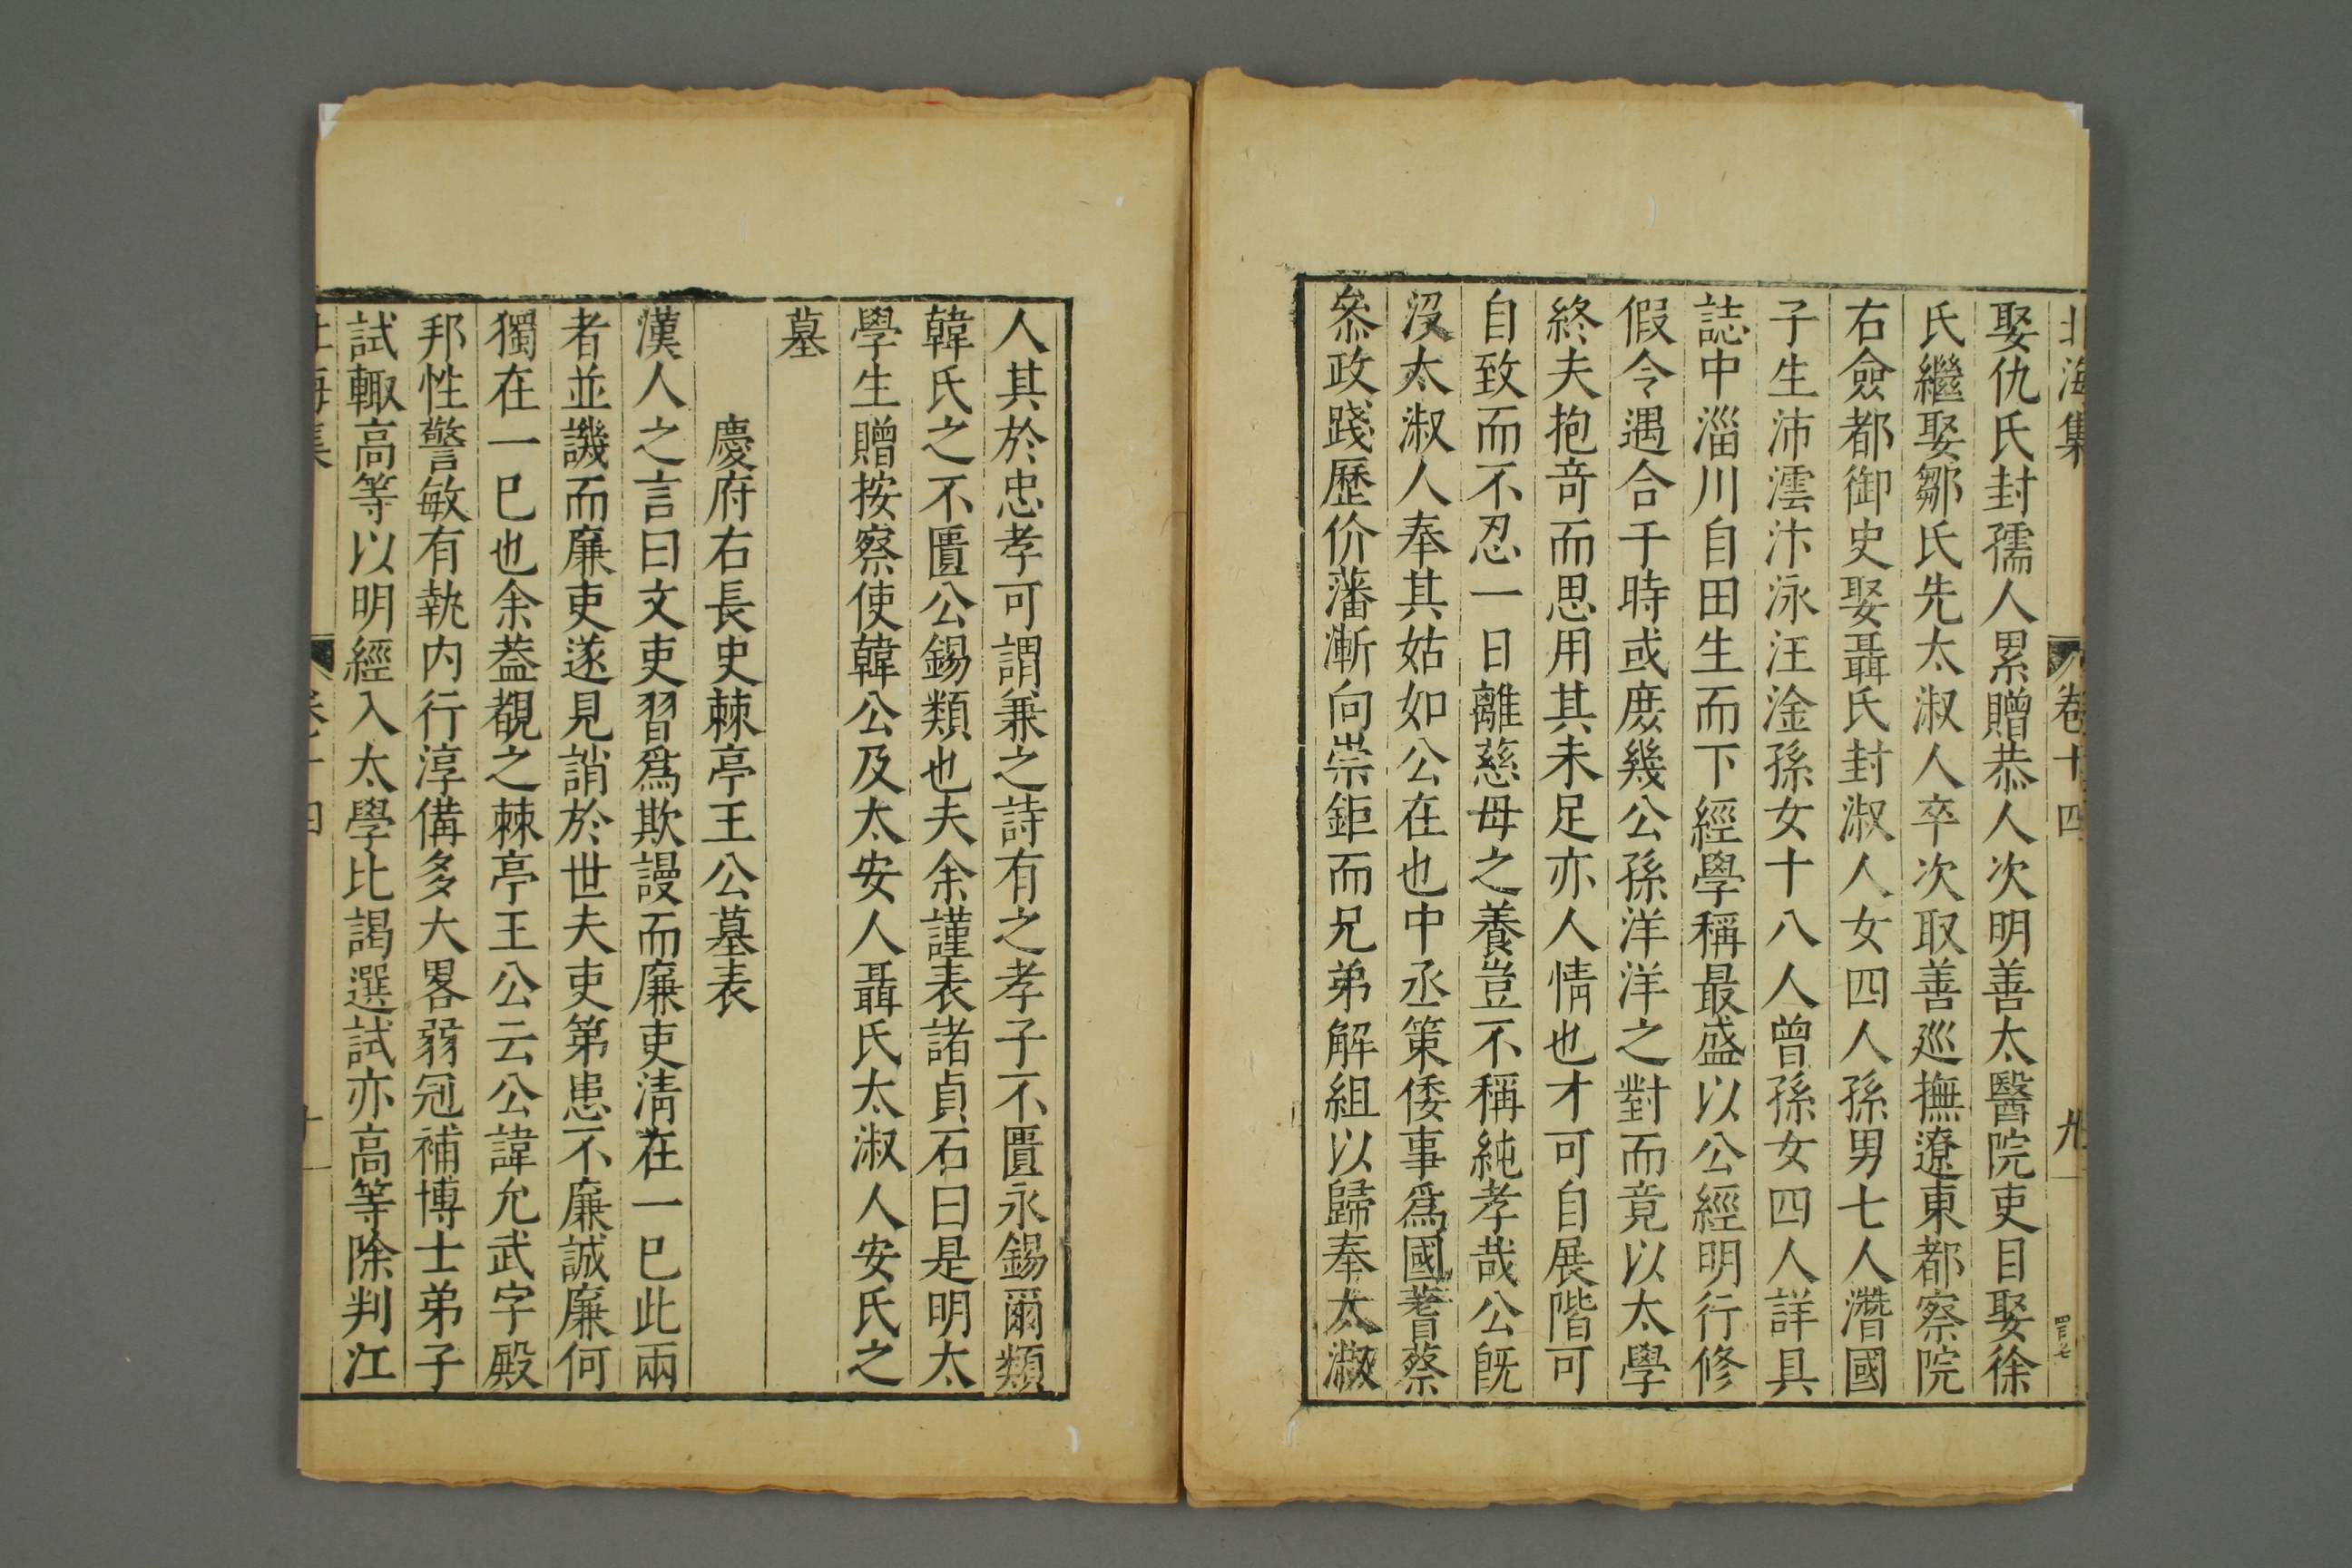 北海集 卷十四 九
娶仇氏封孺人累贈恭人次明善太醫院吏目娶徐
氏繼娶鄒氏先太淑人卒次取善巡撫遼東都察院
右僉都御史娶聶氏封淑人女四人孫男七人濳國
子生沛澐汴泳汪淦孫女十八人曾孫女四人詳具
誌中淄川自田生而下經學稱最盛以公經明行修
假令遇合于時或庻幾公孫洋洋之對而竟以太學
終夫抱竒而思用其未足亦人情也才可自展階可
自致而不忍一日離慈母之養豈不稱純孝哉公既
沒太淑人奉其姑如公在也中丞策倭事爲國蓍蔡
叅政踐歷价藩漸向崇鉅而兄弟解組以歸奉太淑
人其於忠孝可謂兼之詩有之孝子不匱永錫爾類
韓氏之不匱公錫類也夫余謹表諸貞石曰是明太
學生贈按察使韓公及太安人聶氏太淑人安氏之
墓
慶府右長史棘亭王公墓表
漢人之言曰文吏習爲欺謾而廉吏清在一巳此兩
者並譏而廉吏遂見誚於世夫吏第患不廉誠廉何
獨在一巳也余葢覩之棘亭王公云公諱允武字殿
邦性警敏有執内行淳備多大畧弱冠補博士弟子
試輙高等以明經入太學比謁選試亦高等除判江